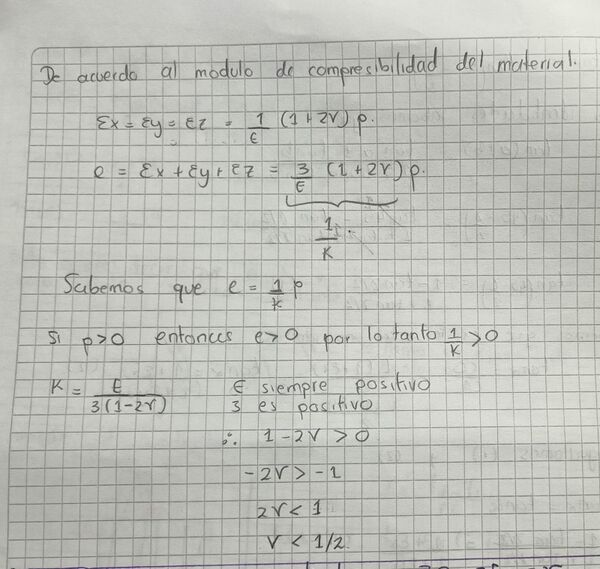 De acuerdo al modulo de compresibilidad del material.
εx = εy = εz = 1/E (1+2ν) p.
e = εx + εy + εz = 3/E (1+2ν) p.
1/K .
Sabemos que e = 1/k p
Si p>0 entonces e>0 por lo tanto 1/K >0
K = E/3(1-2ν) E siempre positivo
3 es positivo
∴ 1-2ν > 0
-2ν > -1
2ν < 1
ν < 1/2